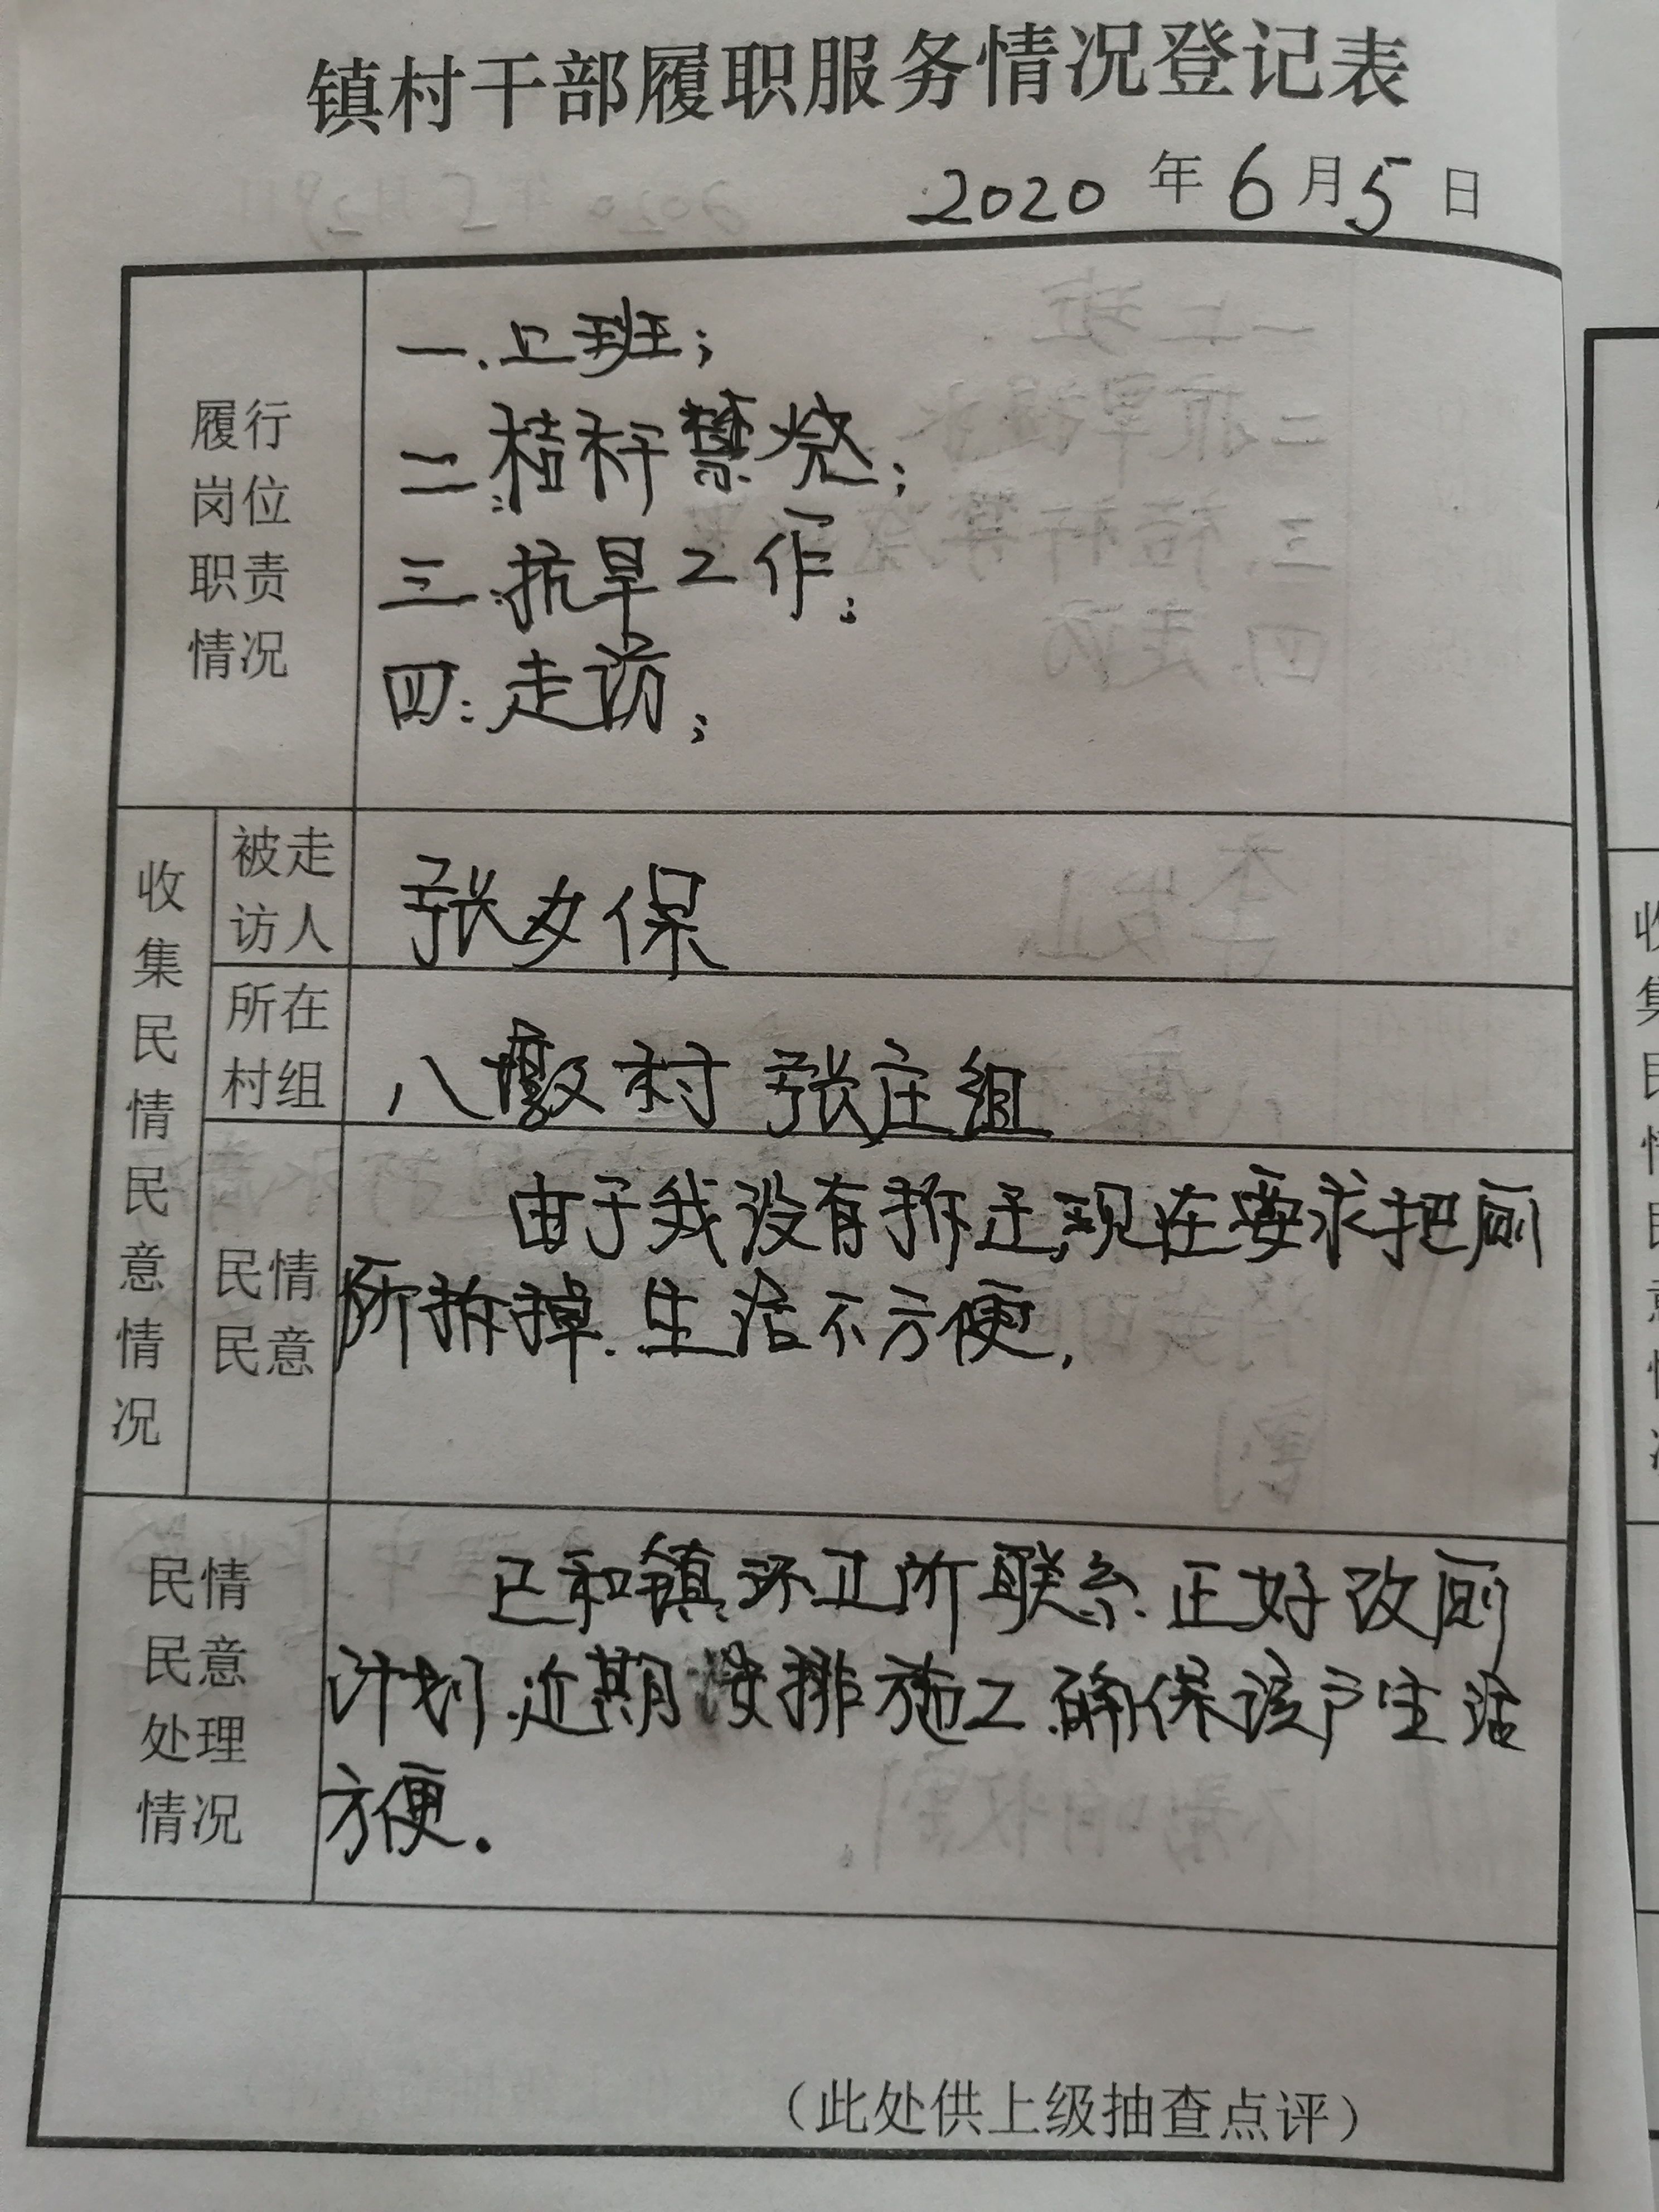 镇村干部履职服务情况登记表
2020年6月5日
履行
岗位
职责
情况
一.上班;
二.秸秆禁烧;
三.抗旱工作;
四:走访;
收集民情民意情况
被走
访人
张夕保
所在
村组
八墩村 张庄组
民情
民意
由于我没有拆迁,现在要求把厕
所拆掉.生活不方便.
民情
民意
处理
情况
已和镇环卫所联系.正好改厕
计划.近期安排施工.确保该户生活
方便.
（此处供上级抽查点评）